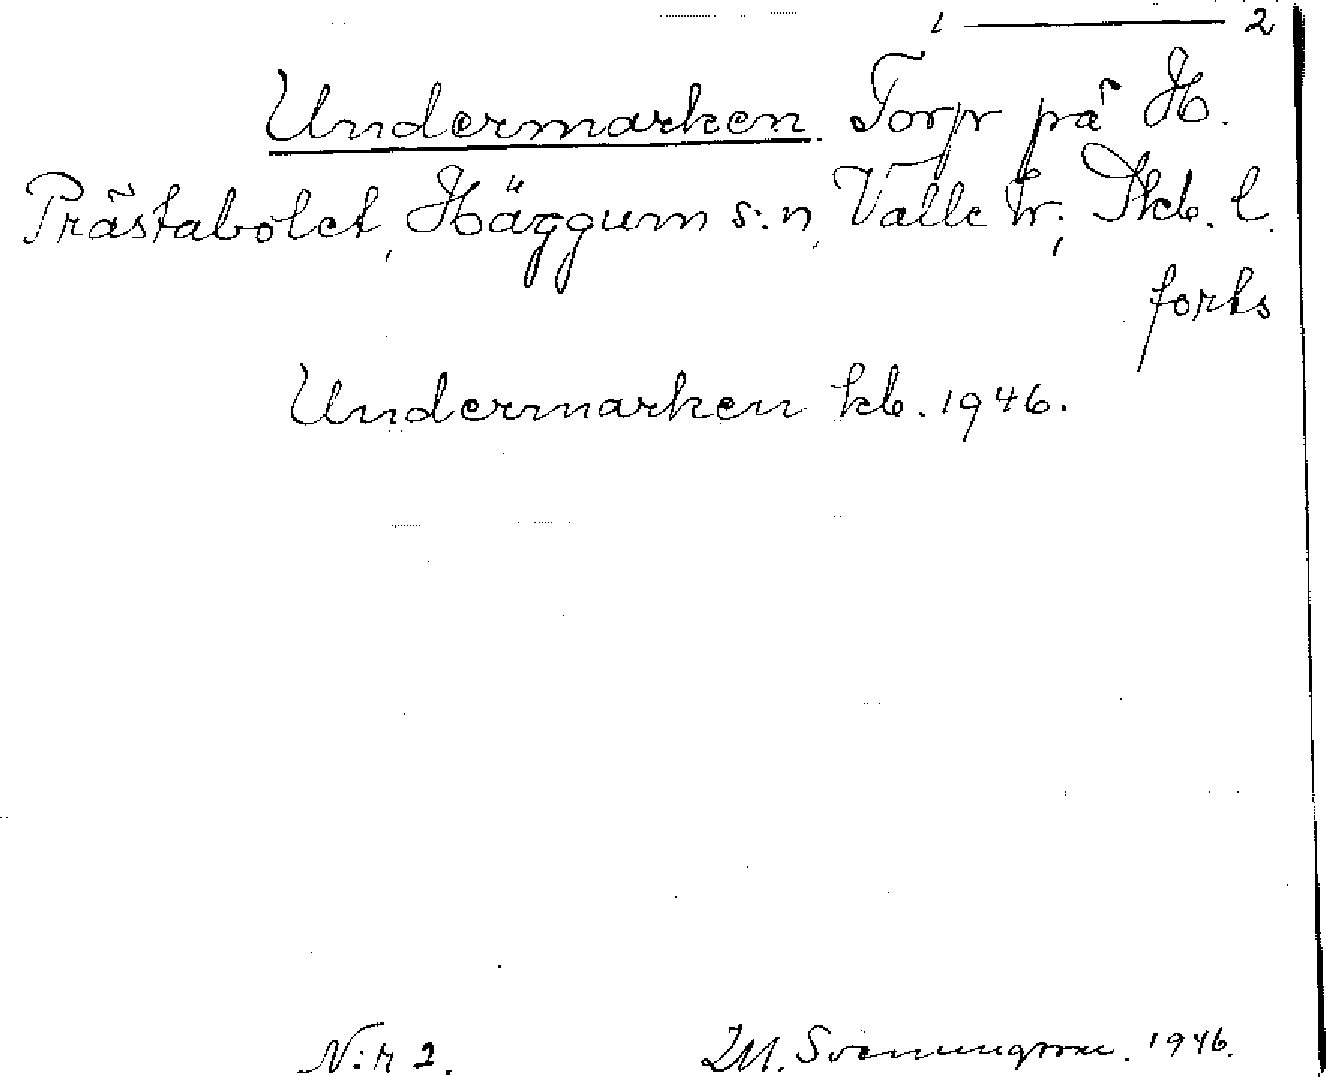 1 — 2
Undermarken. Torp på H.
Prästabolet, Häggum s:n, Valle hr; Skb. l.
forts
Undermarken kb. 1946.
N:r 2. M. Svenungsson. 1946.